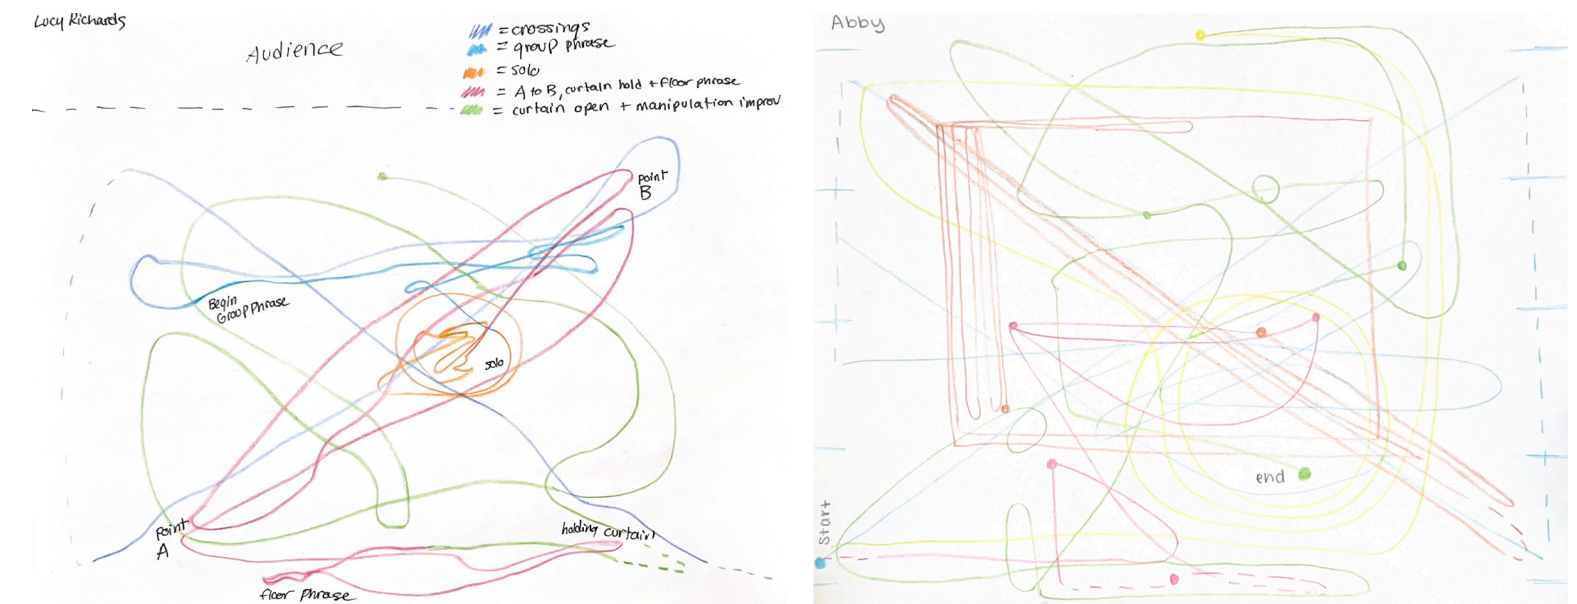 Lucy Richards
Audience
= crossings
= group phrase
= solo
= A to B, curtain hold + floor phrase
= curtain open + manipulation improv
point
B
Begin
Group Phrase
solo
point
A
holding curtain
floor phrase
Abby
end
Start